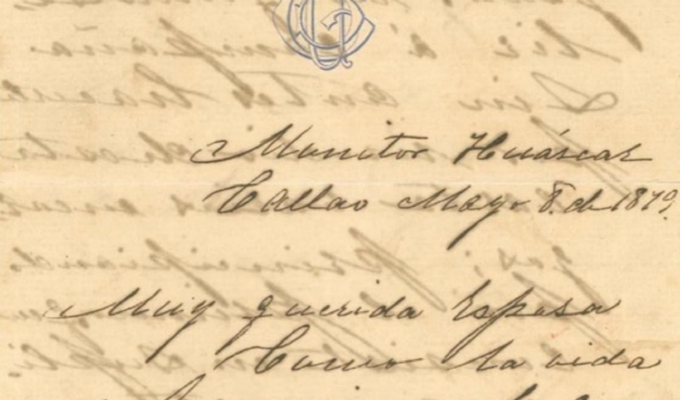 Monitor Huáscar
Callao Mayo 8. de 1879.
Muy querida Esposa
Como la vida